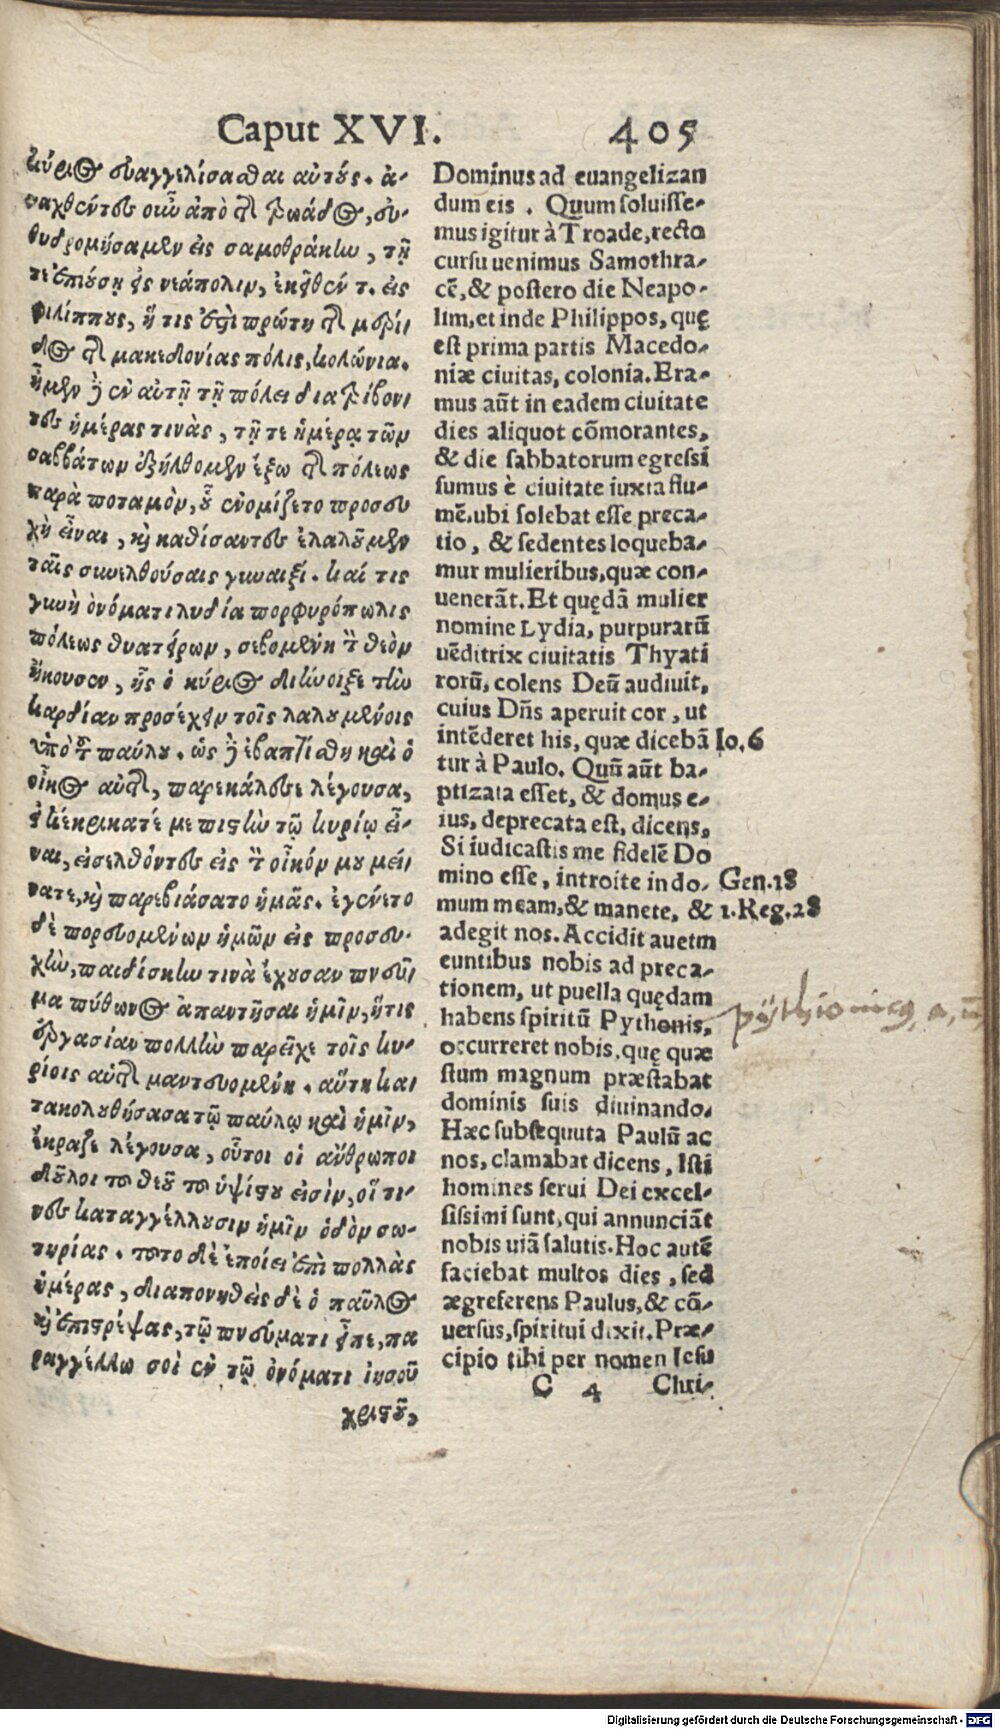 Caput XVI. 405
κύριος εὐαγγελίσασθαι αὐτούς. ἀ-
ναχθέντες οὖν ἀπὸ τῆς τρωάδος, εὐ-
θυδρομήσαμεν εἰς σαμοθράκην, τῇ
τε ἐπιούσῃ εἰς νεάπολιν, ἐκεῖθέν τ. εἰς
φιλίππους, ἥ τις ἐστὶ πρώτη τῆς μερί-
δος τῆς μακεδονίας πόλις, κολώνια.
ἦμεν δὲ ἐν αὐτῇ τῇ πόλει διατρίβον
τες ἡμέρας τινὰς, τῇ τε ἡμέρᾳ τῶν
σαββάτων ἐξήλθομεν ἔξω τῆς πόλεως
παρὰ ποταμὸν, οὗ ἐνομίζετο προσευ
χὴ εἶναι, καὶ καθίσαντες ἐλαλοῦμεν
ταῖς συνελθούσαις γυναιξί. καί τις
γυνὴ ὀνόματι λυδία πορφυρόπωλις
πόλεως θυατείρων, σεβομένη τὸν θεὸν
ἤκουσεν, ἧς ὁ κύριος διήνοιξε τὴν
καρδίαν προσέχειν τοῖς λαλουμένοις
ὑπὸ τοῦ παύλου. ὡς δὲ ἐβαπτίσθη καὶ ὁ
οἶκος αὐτῆς, παρεκάλεσε λέγουσα,
εἰ κεκρικατέ με πιστὴν τῷ κυρίῳ εἶ-
ναι, εἰσελθόντες εἰς τὸν οἶκόν μου μεί
νατε, καὶ παρεβιάσατο ἡμᾶς. ἐγένετο
δὲ πορευομένων ἡμῶν εἰς προσευ-
χὴν, παιδίσκην τινὰ ἔχουσαν πνεῦ
μα πύθωνος ἀπαντῆσαι ἡμῖν, ἥτις
ἐργασίαν πολλὴν παρεῖχε τοῖς κυ-
ρίοις αὐτῆς μαντευομένη. αὕτη κα
τακολουθήσασα τῷ παύλῳ καὶ ἡμῖν,
ἔκραζε λέγουσα, οὗτοι οἱ ἄνθρωποι
δοῦλοι τοῦ θεοῦ τοῦ ὑψίστου εἰσὶν, οἵ τι-
νες καταγγέλλουσιν ἡμῖν ὁδὸν σω-
τηρίας. τοῦτο δὲ ἐποίει ἐπὶ πολλὰς
ἡμέρας, διαπονηθεὶς δὲ ὁ παῦλος
καὶ ἐπιστρέψας, τῷ πνεύματι εἶπε, πα
ραγγέλλω σοὶ ἐν τῷ ὀνόματι ἰησοῦ
χριστοῦ,
Dominus ad euangelizan
dum eis . Quum soluisse-
mus igitur à Troade, recto
cursu uenimus Samothra-
cẽ, & postero die Neapo-
lim, et inde Philippos, quę
est prima partis Macedo-
niæ ciuitas, colonia. Era-
mus aũt in eadem ciuitate
dies aliquot cõmorantes,
& die sabbatorum egressi
sumus è ciuitate iuxta flu-
mẽ, ubi solebat esse preca-
tio, & sedentes loqueba-
mur mulieribus, quæ con-
uenerãt. Et quędã mulier
nomine Lydia, purpurarũ
uẽditrix ciuitatis Thyati
rorũ, colens Deũ audiuit,
cuius Dñs aperuit cor, ut
intẽderet his, quæ dicebã
tur à Paulo. Quũ aũt ba-
ptizata esset, & domus e-
ius, deprecata est, dicens,
Si iudicastis me fidelẽ Do
mino esse, introite in do-
mum meam, & manete, &
adegit nos. Accidit auetm
euntibus nobis ad preca-
tionem, ut puella quędam
habens spiritũ Pythonis,
occurreret nobis, quę quæ
stum magnum præstabat
dominis suis diuinando.
Hæc subsequuta Paulũ ac
nos, clamabat dicens, Isti
homines serui Dei excel-
sissimi sunt, qui annunciãt
nobis uiã salutis. Hoc autẽ
faciebat multos dies, sed
ægreferens Paulus, & cõ-
uersus, spiritui dixit, Præ-
cipio tibi per nomen Iesu
C 4 Chri-
Io. 6
Gen. 18
1. Reg. 28
Digitalisierung gefördert durch die Deutsche Forschungsgemeinschaft - DFG